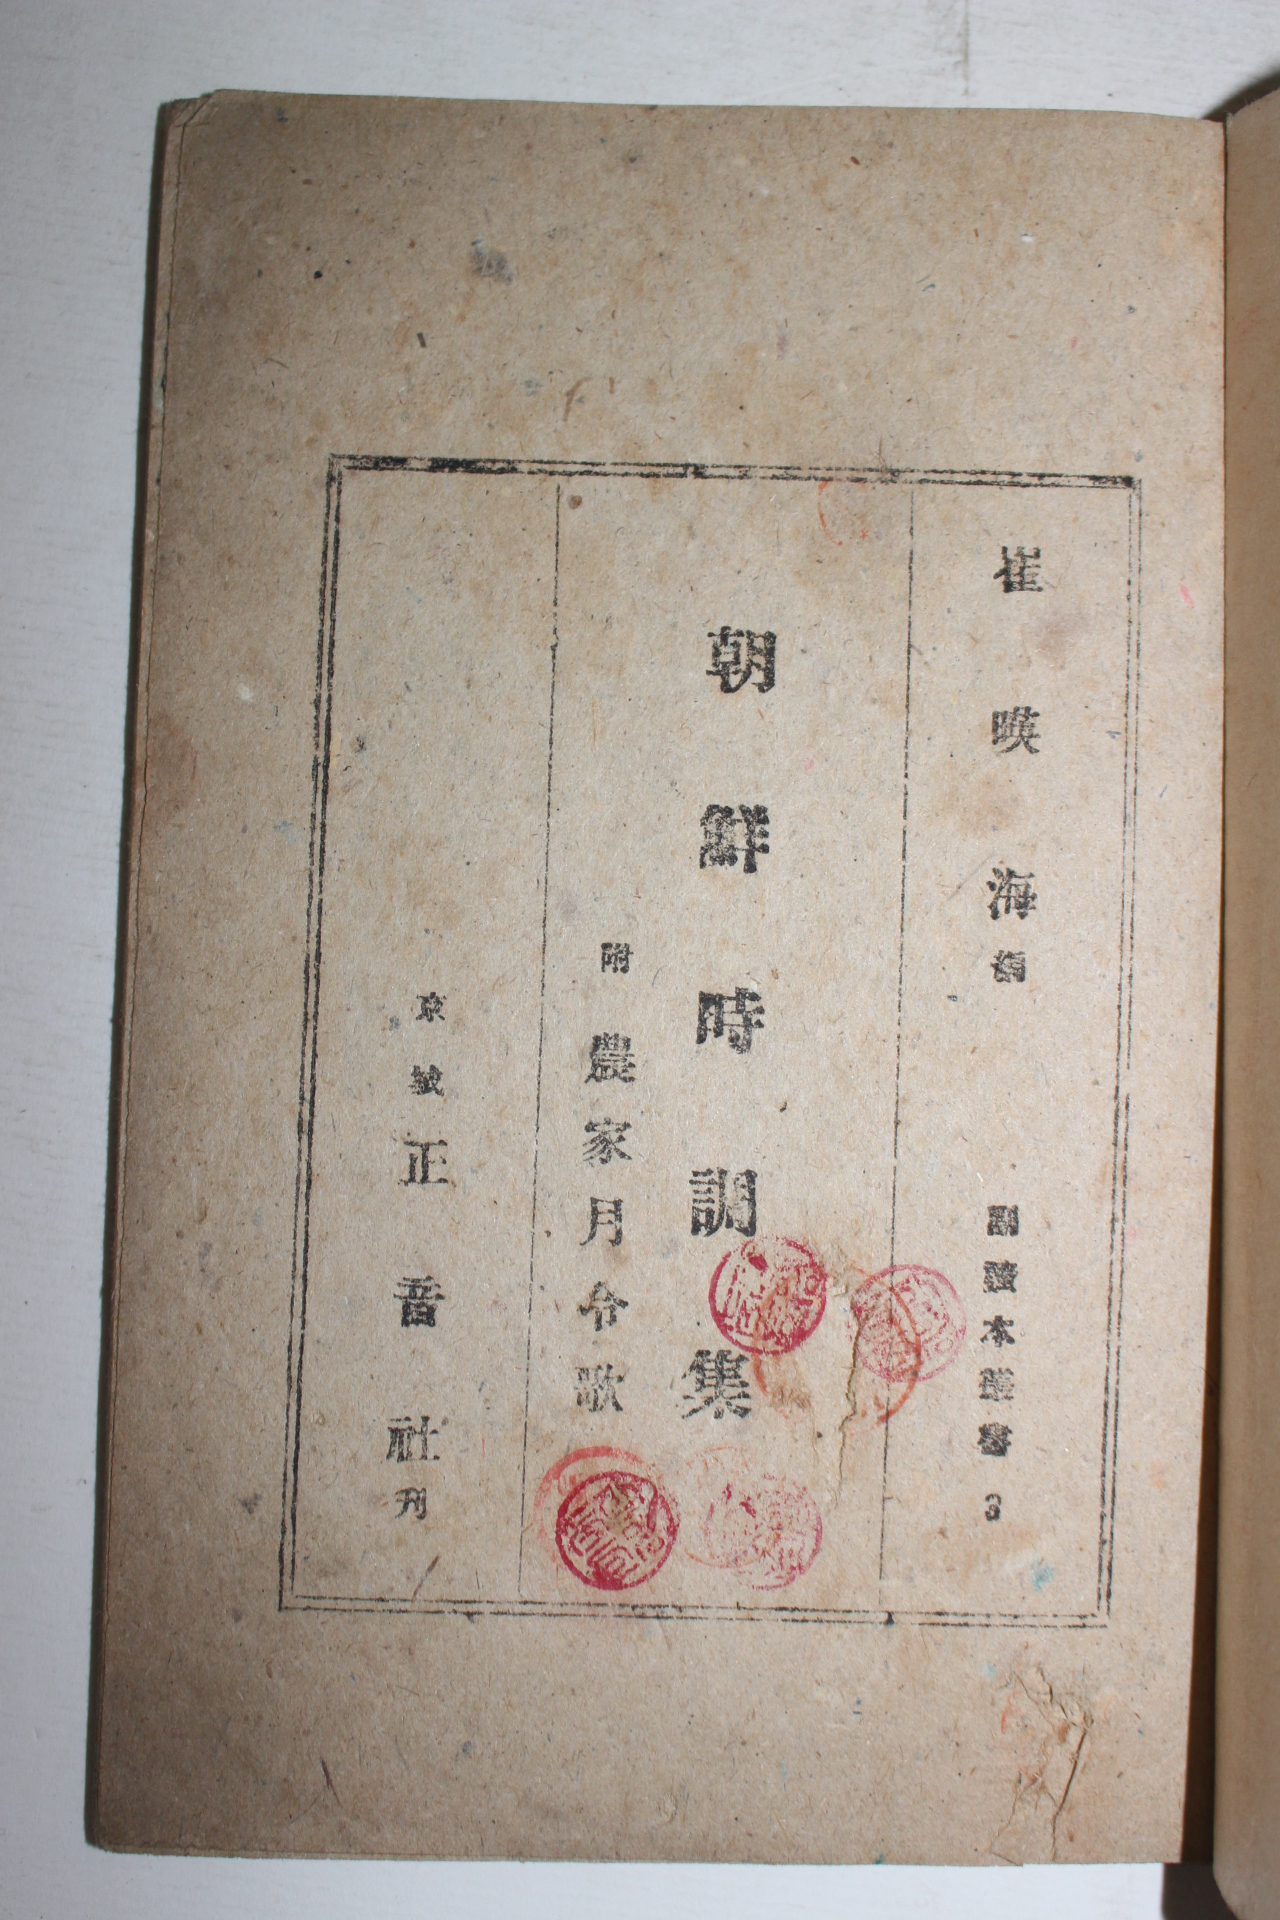 崔暎海編
副讀本叢書 3
朝鮮時調集
附 農家月令歌
京城 正音社刊